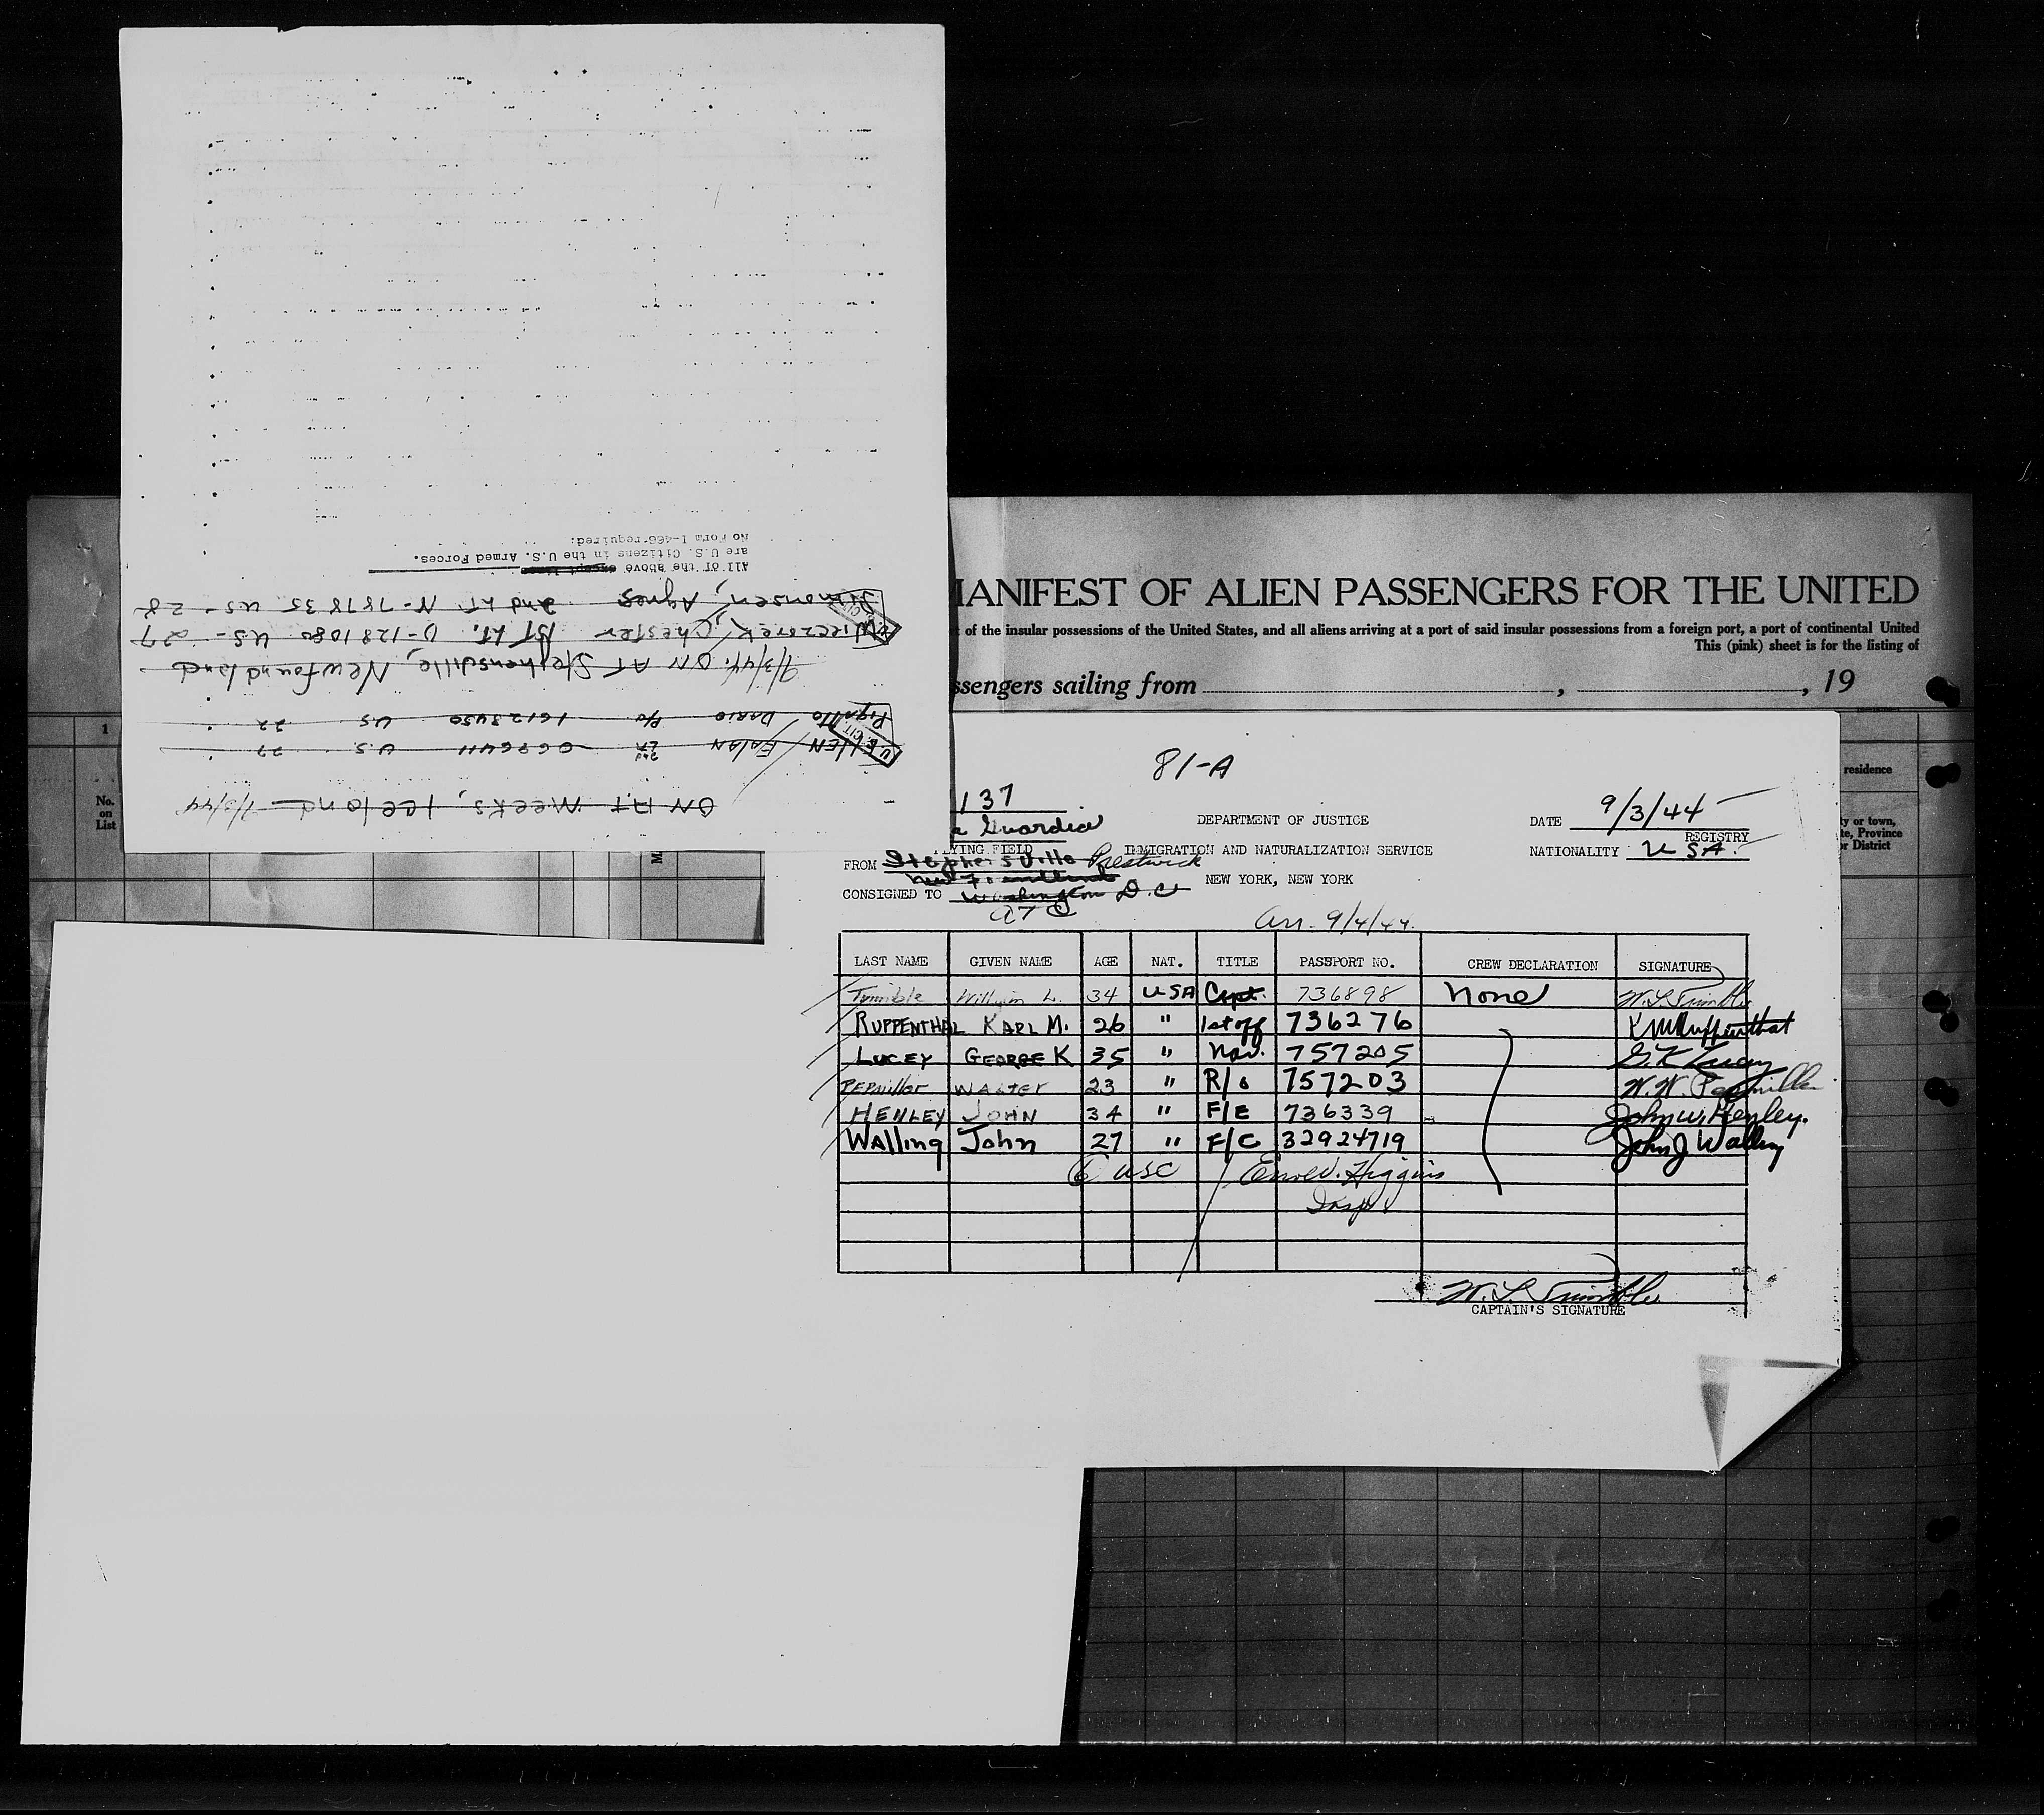 ON AT Meeks, Iceland 9/3/44
Ealan 2nd Lt 0696411 U.S. 22
Dario 16128450 U.S. 22
9/3/44. ON AT Stephensville, Newfoundland
Wieczorek, Chester 1ST LT. O-1281080 US- 27
Simonsen, Agnes 2nd LT. N-787835 US- 28
All of the above except
are U.S. Citizens in the U.S. Armed Forces.
No Form I-466 required.
MANIFEST OF ALIEN PASSENGERS FOR THE UNITED
of the insular possessions of the United States, and all aliens arriving at a port of said insular possessions from a foreign port, a port of continental United
This (pink) sheet is for the listing of
ssengers sailing from , , 19
1
No.
on
List
residence
y or town,
te, Province
or District
81-A
137
Guardia
FLYING FIELD
DEPARTMENT OF JUSTICE
DATE 9/3/44
REGISTRY
IMMIGRATION AND NATURALIZATION SERVICE
NATIONALITY USA.
FROM Stephensville Prestwick
NEW YORK, NEW YORK
CONSIGNED TO Washington D.C.
ATC
Arr. 9/4/44.
LAST NAME GIVEN NAME AGE NAT. TITLE PASSPORT NO. CREW DECLARATION SIGNATURE
Trimble William L. 34 USA Capt. 736898 None W. L. Trimble
RUPPENTHAL KARL M. 26 " 1st off 736276 K M Ruppenthal
LUCEY GEORGE K 35 " Nav. 757205 G. K. Lucey
PEPmiller WALTER 23 " R/o 757203 W. W. Pepmiller
HENLEY JOHN 34 " F/E 736339 John W. Henley.
Walling John 27 " F/C 32924719 John J Walling
6 USC Higgins
Insp.
W. L. Trimble
CAPTAIN'S SIGNATURE